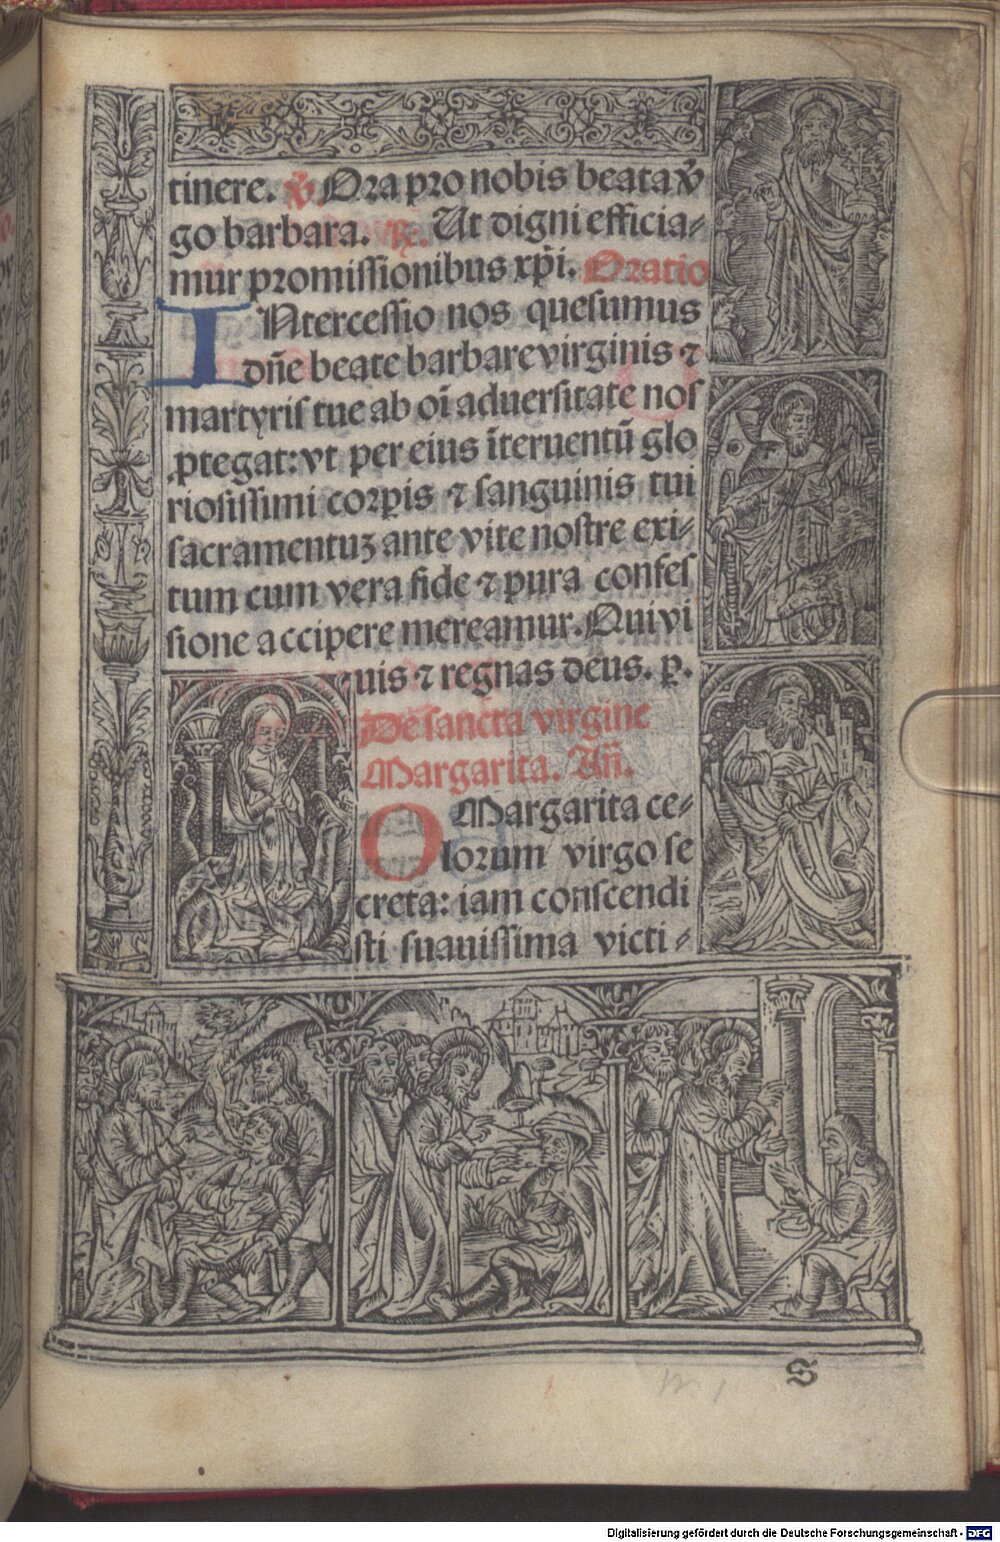 tinere. ℣ Ora pro nobis beata v̄
go barbara. ℟. Ut digni efficia⸗
mur promissionibus xp̄i. Oratio
INtercessio nos quesumus
dn̄e beate barbare virginis ⁊
martyris tue ab oī aduersitate nos
ꝓtegat: vt per eius īteruentū glo
riosissimi corꝑis ⁊ sanguinis tui
sacramentuꝫ ante vite nostre exi⸗
tum cum vera fide ⁊ pura confes
sione accipere mereamur. Qui vi
uis ⁊ regnas deus. ꝑ.
De sancta virgine
Margarita. Añ.
O Margarita ce⸗
lorum virgo se
creta: iam conscendi
sti suauissima victi⸗
S
m 1
Digitalisierung gefördert durch die Deutsche Forschungsgemeinschaft - DFG